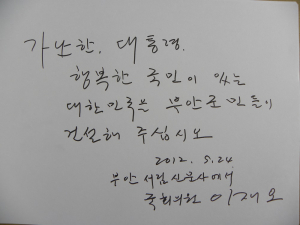 가난한. 대통령.
행복한 국민이 있는
대한민국은 부안군민들이
건설해 주십시오
2012. 5.24
부안서림신문사에서
국회의원 이재오